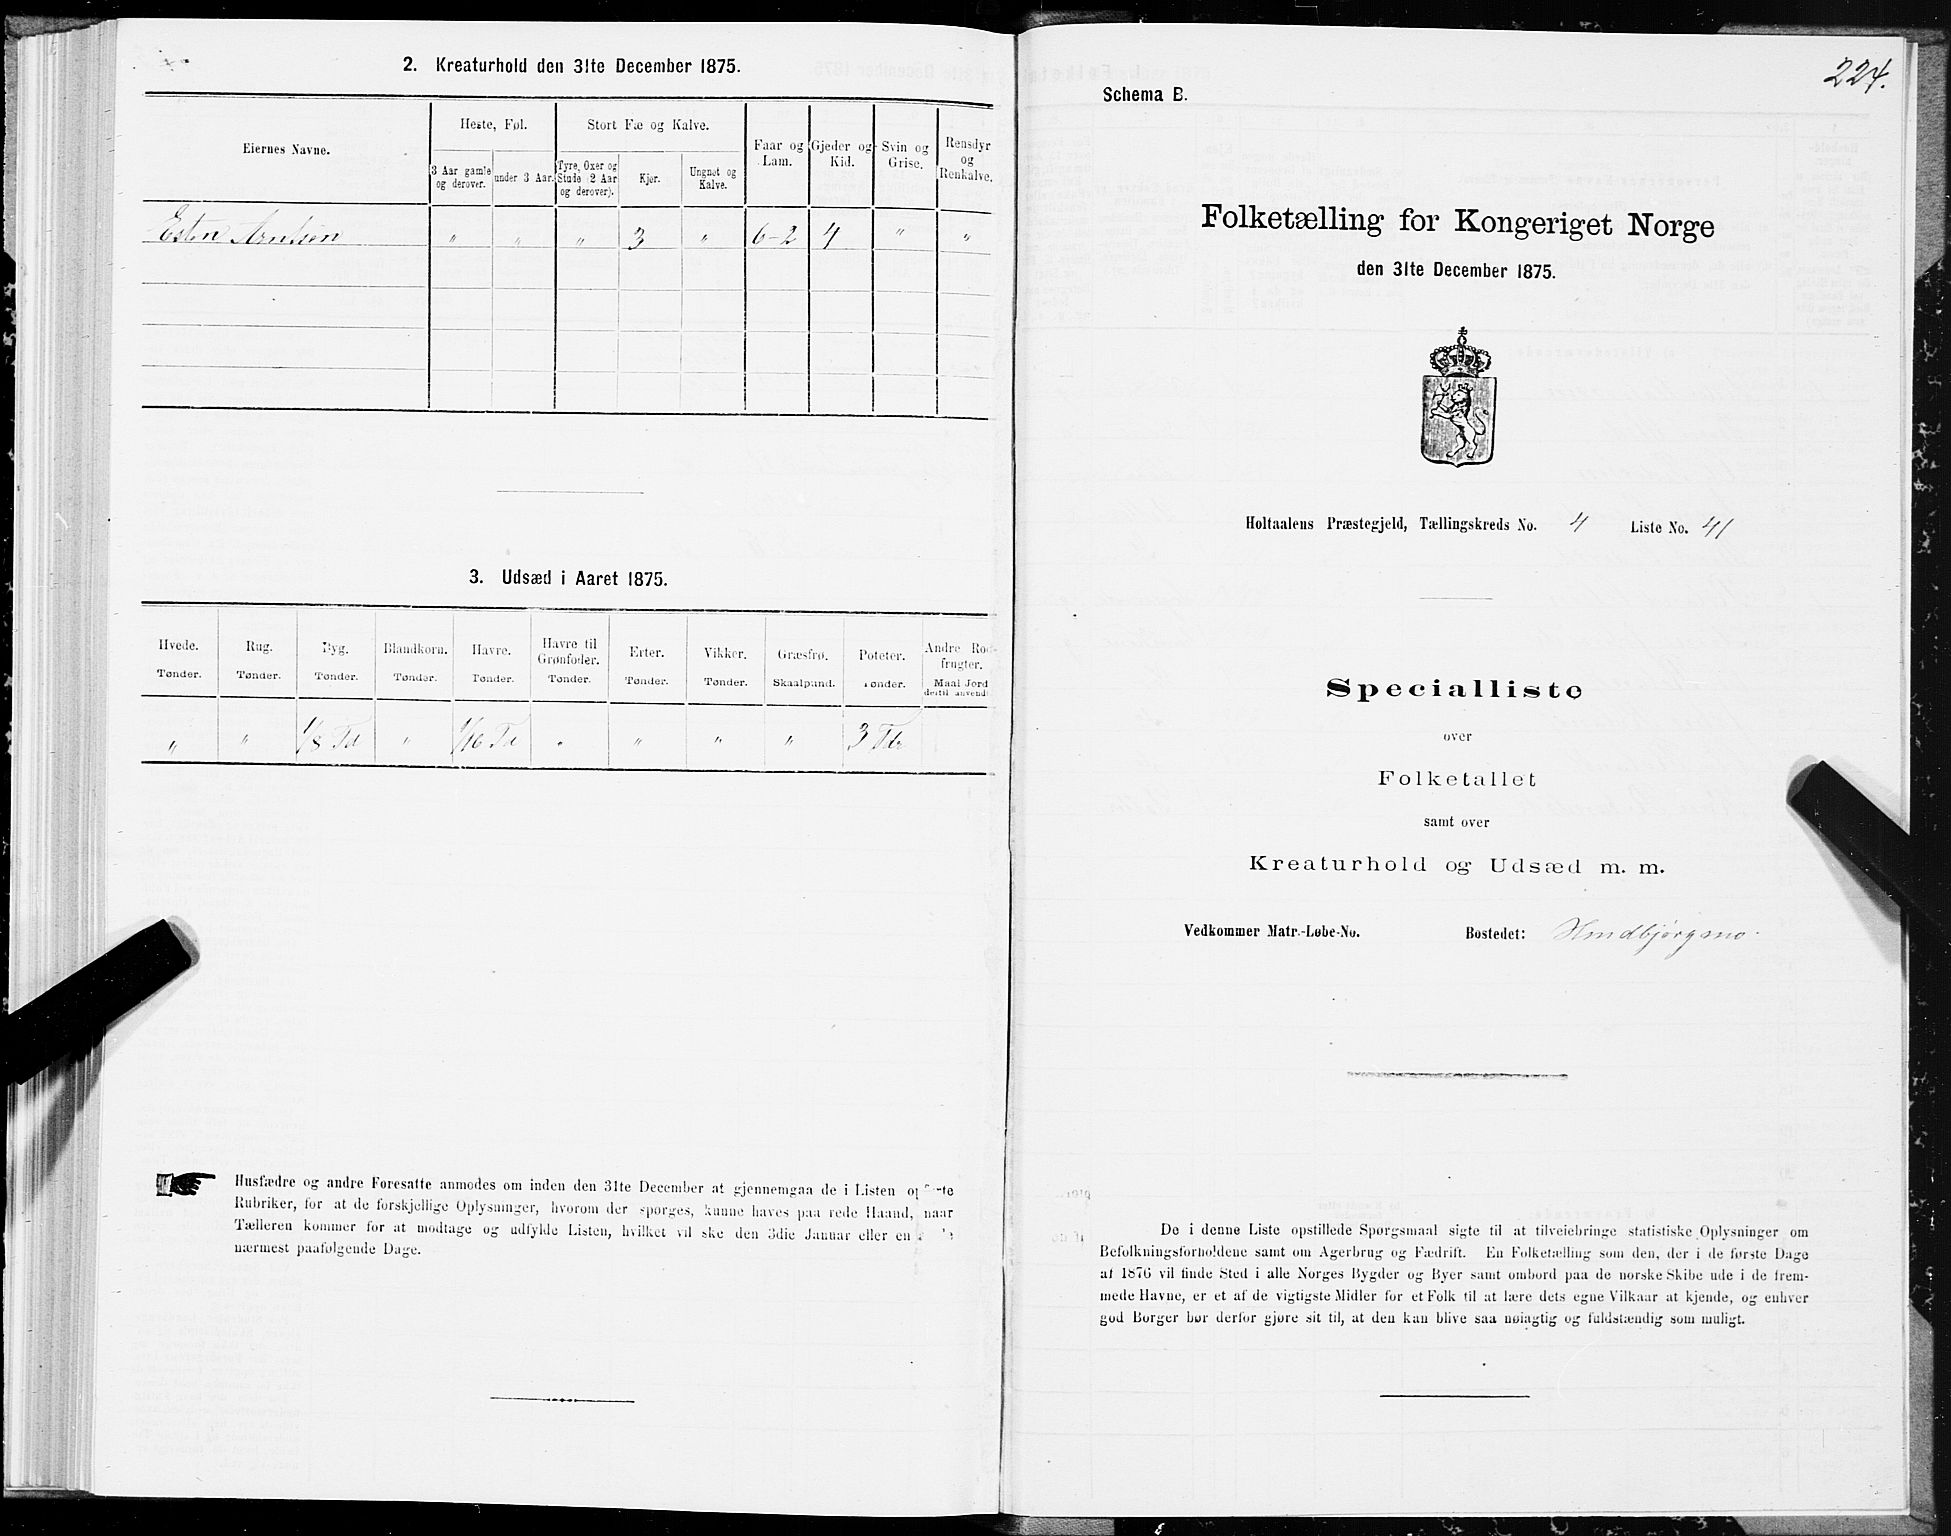 2. Kreaturhold den 31te December 1875.
Eiernes Navne.
Heste, Føl.
Stort Fæ og Kalve.
Faar og Lam.
Gjeder og Kid.
Svin og Grise.
Rensdyr og Renkalve.
3 Aar gamle og derover.
under 3 Aar.
Tyre, Oxer og Stude (2 Aar og derover).
Kjør.
Ungnøt og Kalve.
Esten Arntsen " " " 3 " 6-2 4 " "
3. Udsæd i Aaret 1875.
Hvede. Rug. Byg. Blandkorn. Havre. Havre til Grønfoder. Erter. Vikker. Græsfrø. Poteter. Andre Rodfrugter.
Tønder. Tønder. Tønder. Tønder. Tønder. Tønder. Tønder. Tønder. Skaalpund. Tønder. Maal Jord dertil anvendt
" " 1/8 Td " 1/16 Td " " " " 3 Tdr
Husfædre og andre Foresatte anmodes om inden den 31te December at gjennemgaa de i Listen
Rubriker, for at de forskjellige Oplysninger, hvorom der spørges, kunne haves paa rede Haand, naar
Tælleren kommer for at modtage og udfylde Listen, hvilket vil ske den 3die Januar eller en
nærmest paafølgende Dage.
224.
Schema B.
Folketælling for Kongeriget Norge
den 31te December 1875.
Holtaalens Præstegjeld, Tællingskreds No. 4 Liste No. 41
Specialliste
over
Folketallet
samt over
Kreaturhold og Udsæd m. m.
Vedkommer Matr.-Løbe-No. Bostedet:
De i denne Liste opstillede Spørgsmaal sigte til at tilveiebringe statistiske Oplysninger om
Befolkningsforholdene samt om Agerbrug og Fædrift. En Folketælling som den, der i de første Dage
af 1876 vil finde Sted i alle Norges Bygder og Byer samt ombord paa de norske Skibe ude i de frem-
mede Havne, er et af de vigtigste Midler for et Folk til at lære dets egne Vilkaar at kjende, og enhver
god Borger bør derfor gjøre sit til, at den kan blive saa nøiagtig og fuldstændig som muligt.